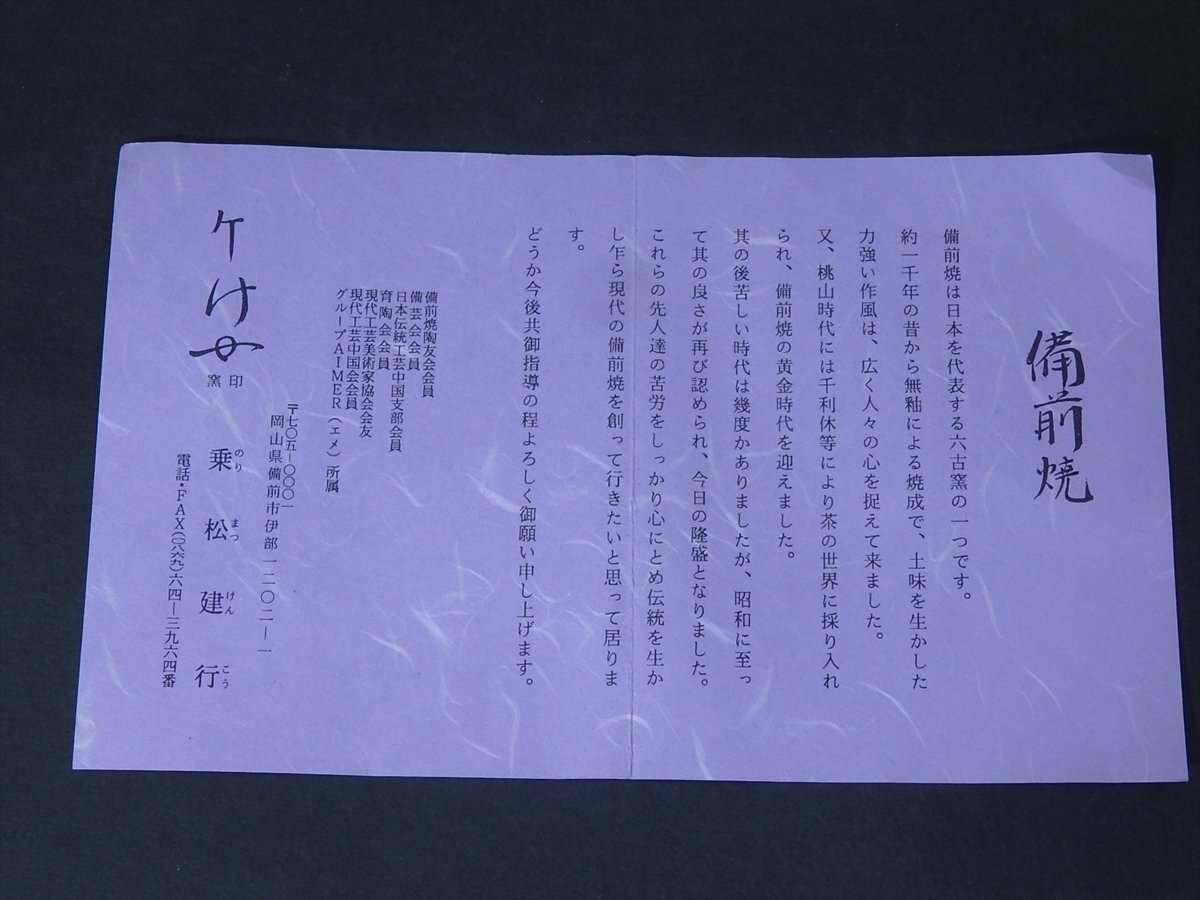 備前焼
備前焼は日本を代表する六古窯の一つです。
約一千年の昔から無釉による焼成で、土味を生かした
力強い作風は、広く人々の心を捉えて来ました。
又、桃山時代には千利休等により茶の世界に採り入れ
られ、備前焼の黄金時代を迎えました。
其の後苦しい時代は幾度かありましたが、昭和に至っ
て其の良さが再び認められ、今日の隆盛となりました。
これらの先人達の苦労をしっかり心にとめ伝統を生か
し乍ら現代の備前焼を創って行きたいと思って居りま
す。
どうか今後共御指導の程よろしく御願い申し上げます。
備前焼陶友会会員
備芸会会員
日本伝統工芸中国支部会員
育陶会会員
現代工芸美術家協会会友
現代工芸中国会会員
グループAIMER(エメ)所属
〒七〇五―〇〇〇一
岡山県備前市伊部一二〇二―一
ケ け
窯印
乗松建行
のり まつ けん こう
電話・FAX(〇八六九)六四―三九六四番